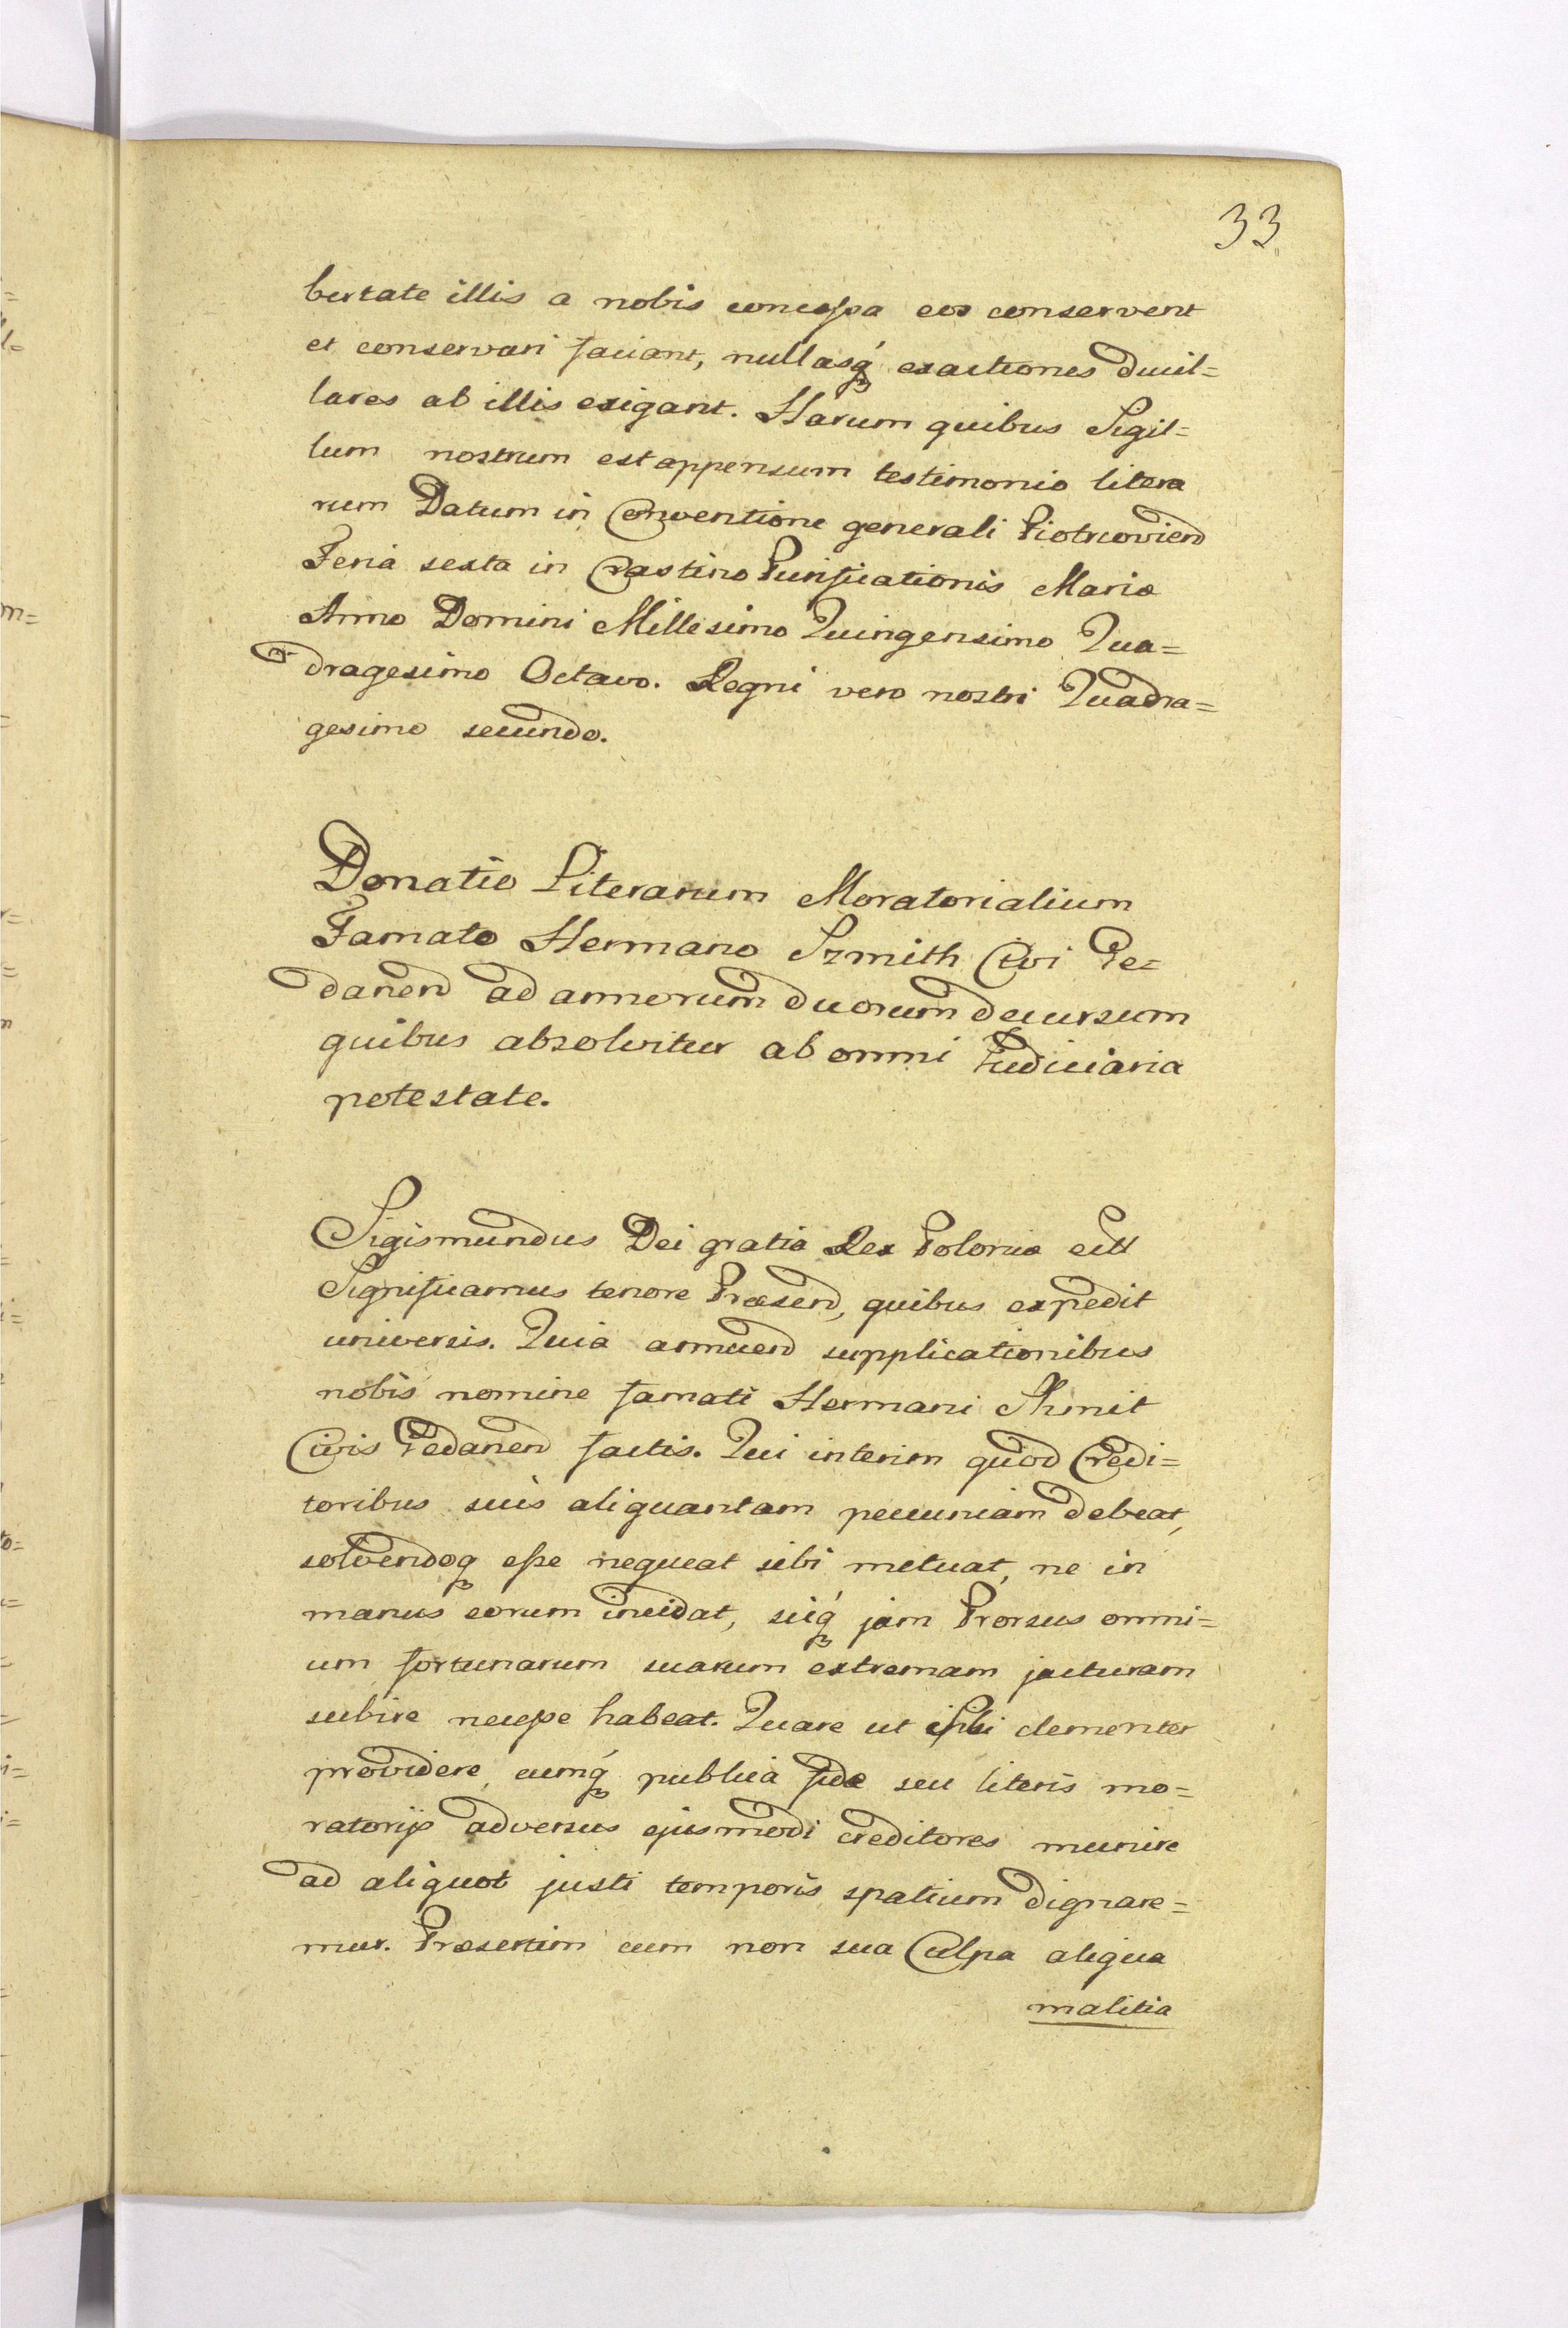 33
bertate illis a nobis concessa eos conservent
et conservari faciant, nullasq́ exactiones ducil=
lares ab illis exigant. Harum quibus Sigil=
lum nostrum est appensum testimonio litera
rum Datum in Conventione generali Piotrcovien
Feria sexta in Crastino Purificationis Mariæ
Anno Domini Millesimo Quingensimo Qua=
dragesimo Octavo. Regni vero nostri Quadra=
gesimo secundo.
Donatio Literarum Moratorialium
Famato Hermano Szmith Civi Ge=
danen ad annorum duorum decursum
quibus absolvitur ab omni Iudiciaria
potestate.
Sigismundus Dei gratia Rex Poloniæ ett
Significamus tenore Præsen, quibus expedit
universis. Quia annuen supplicationibus
nobis nomine famati Hermani Shmit
Civis Gedanen factis. Qui interim quod Credi=
toribus suis aliquantam pecuniam debeat,
solvendoq esse nequeat sibi metuat, ne in
manus eorum incidat, sicq́ jam Prorsus omni=
um fortunarum suarum extremam jacturam
subire necesse habeat. Quare ut ipsi clementer
providere, eumq́ publica fide seu literis mo=
ratorijs adversus ejusmodi creditores munire
ad aliquot justi temporis spatium dignare=
mur. Præsertim cum non sua Culpa aliqua
malitia